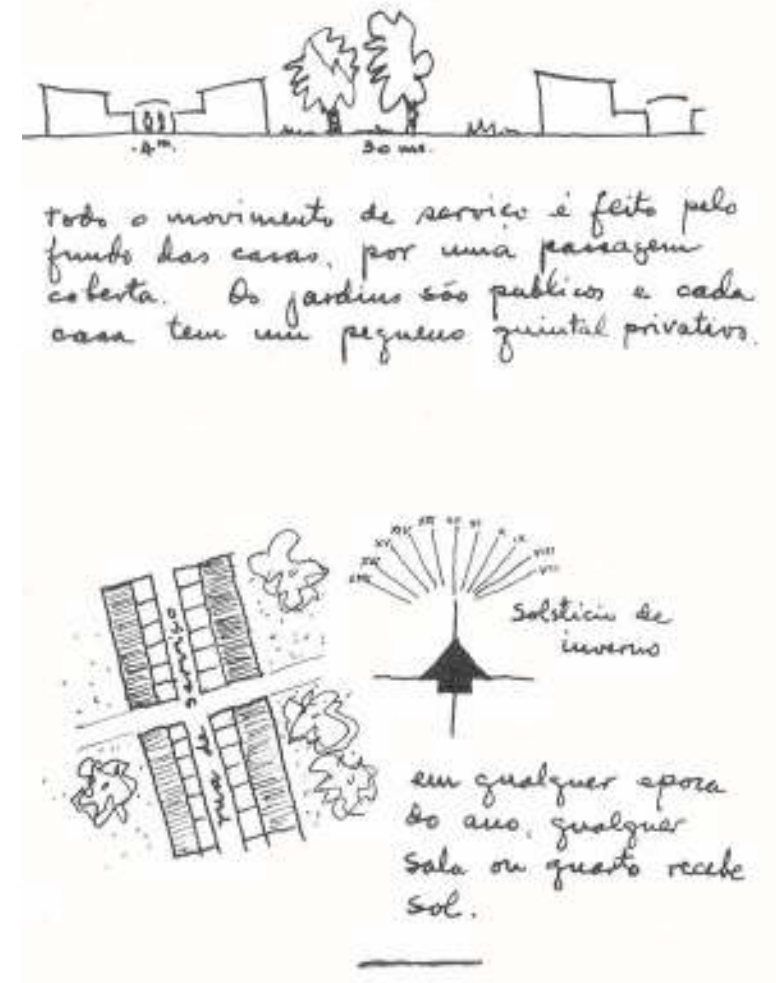 4m.
30 ms.
todo o movimento de serviço é feito pelo
fundo das casas, por uma passagem
coberta. Os jardins são publicos e cada
casa tem um pequeno quintal privativo.
rua de serviço
XV XIV XIII XII XI X IX VIII VII
Solsticio de
inverno
em qualquer epoca
do ano, qualquer
sala ou quarto recebe
sol.